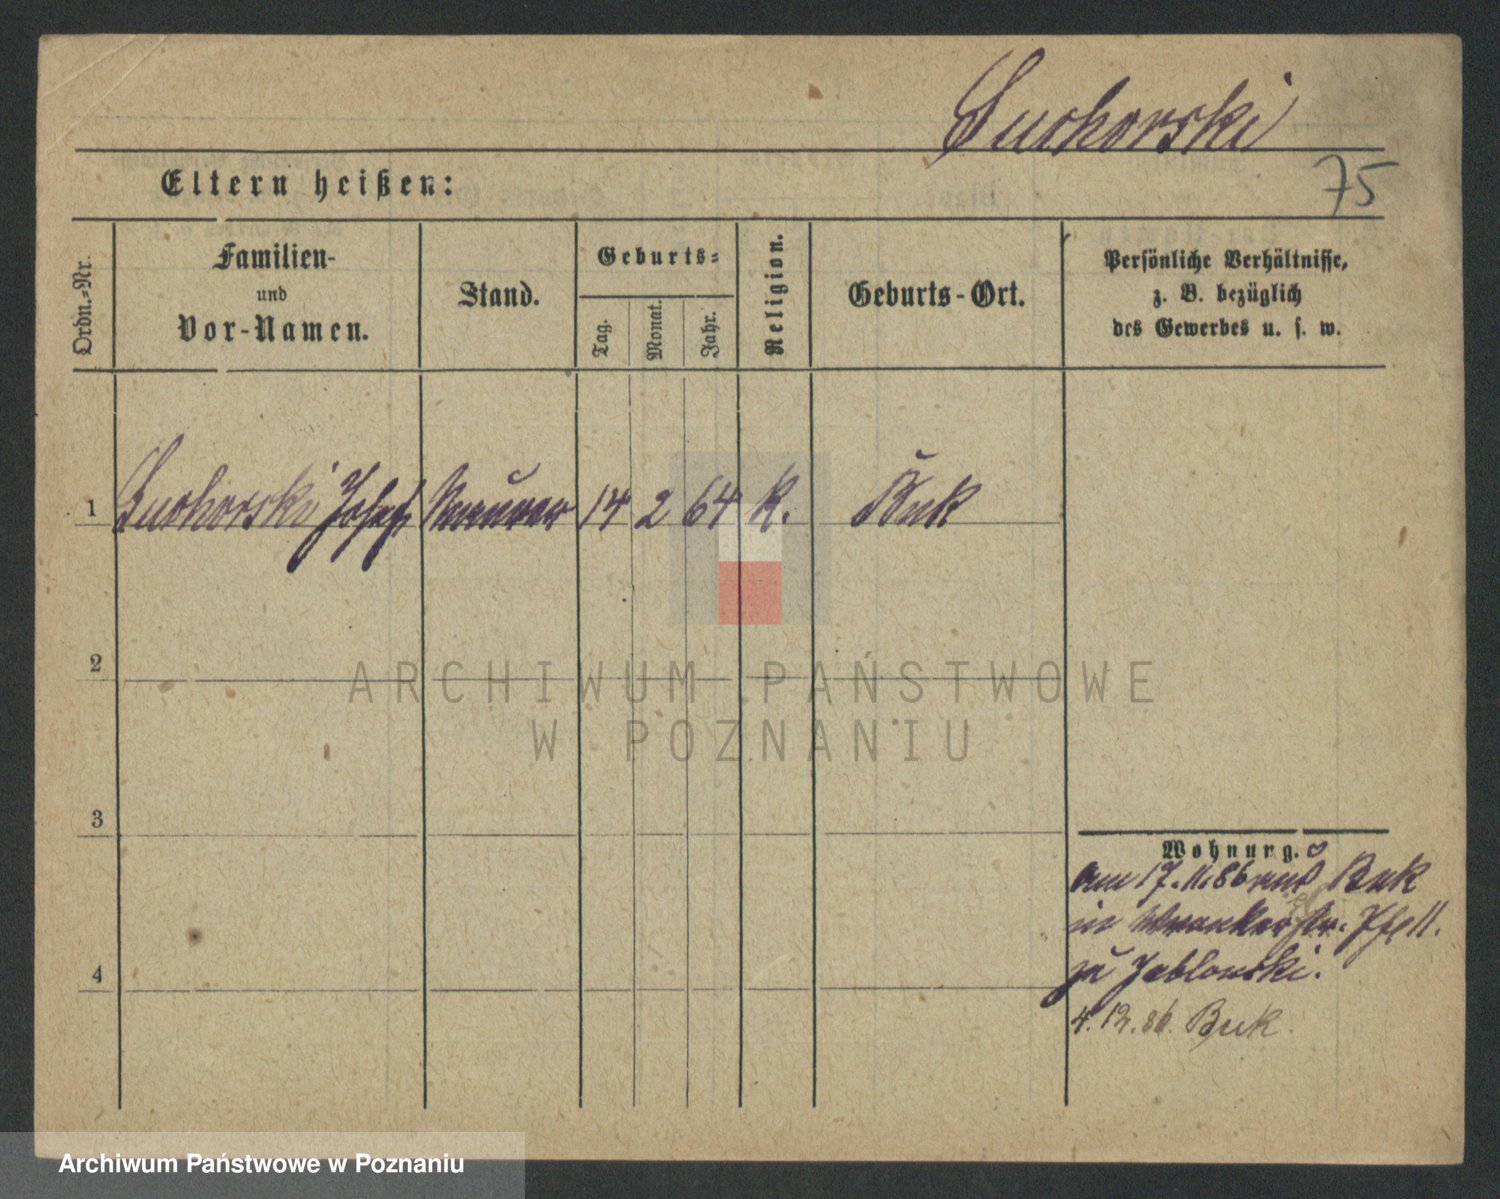 Suchorski
75
Eltern heißen:
Ordn.=Nr.
Familien-
und
Vor-Namen.
Stand.
Geburts=
Tag.
Monat.
Jahr.
Religion.
Geburts-Ort.
Persönliche Verhältnisse,
z. B. bezüglich
des Gewerbes u. s. w.
1 Suchorski Josef Maurer 14 2 64 K. Buk
2
3
4
Wohnung.
am 17.11.86 aus Buk
in Wronkerstr. 11.
zu Jablonski.
4.12.86. Buk.
ARCHIWUM PAŃSTWOWE
W POZNANIU
Archiwum Państwowe w Poznaniu